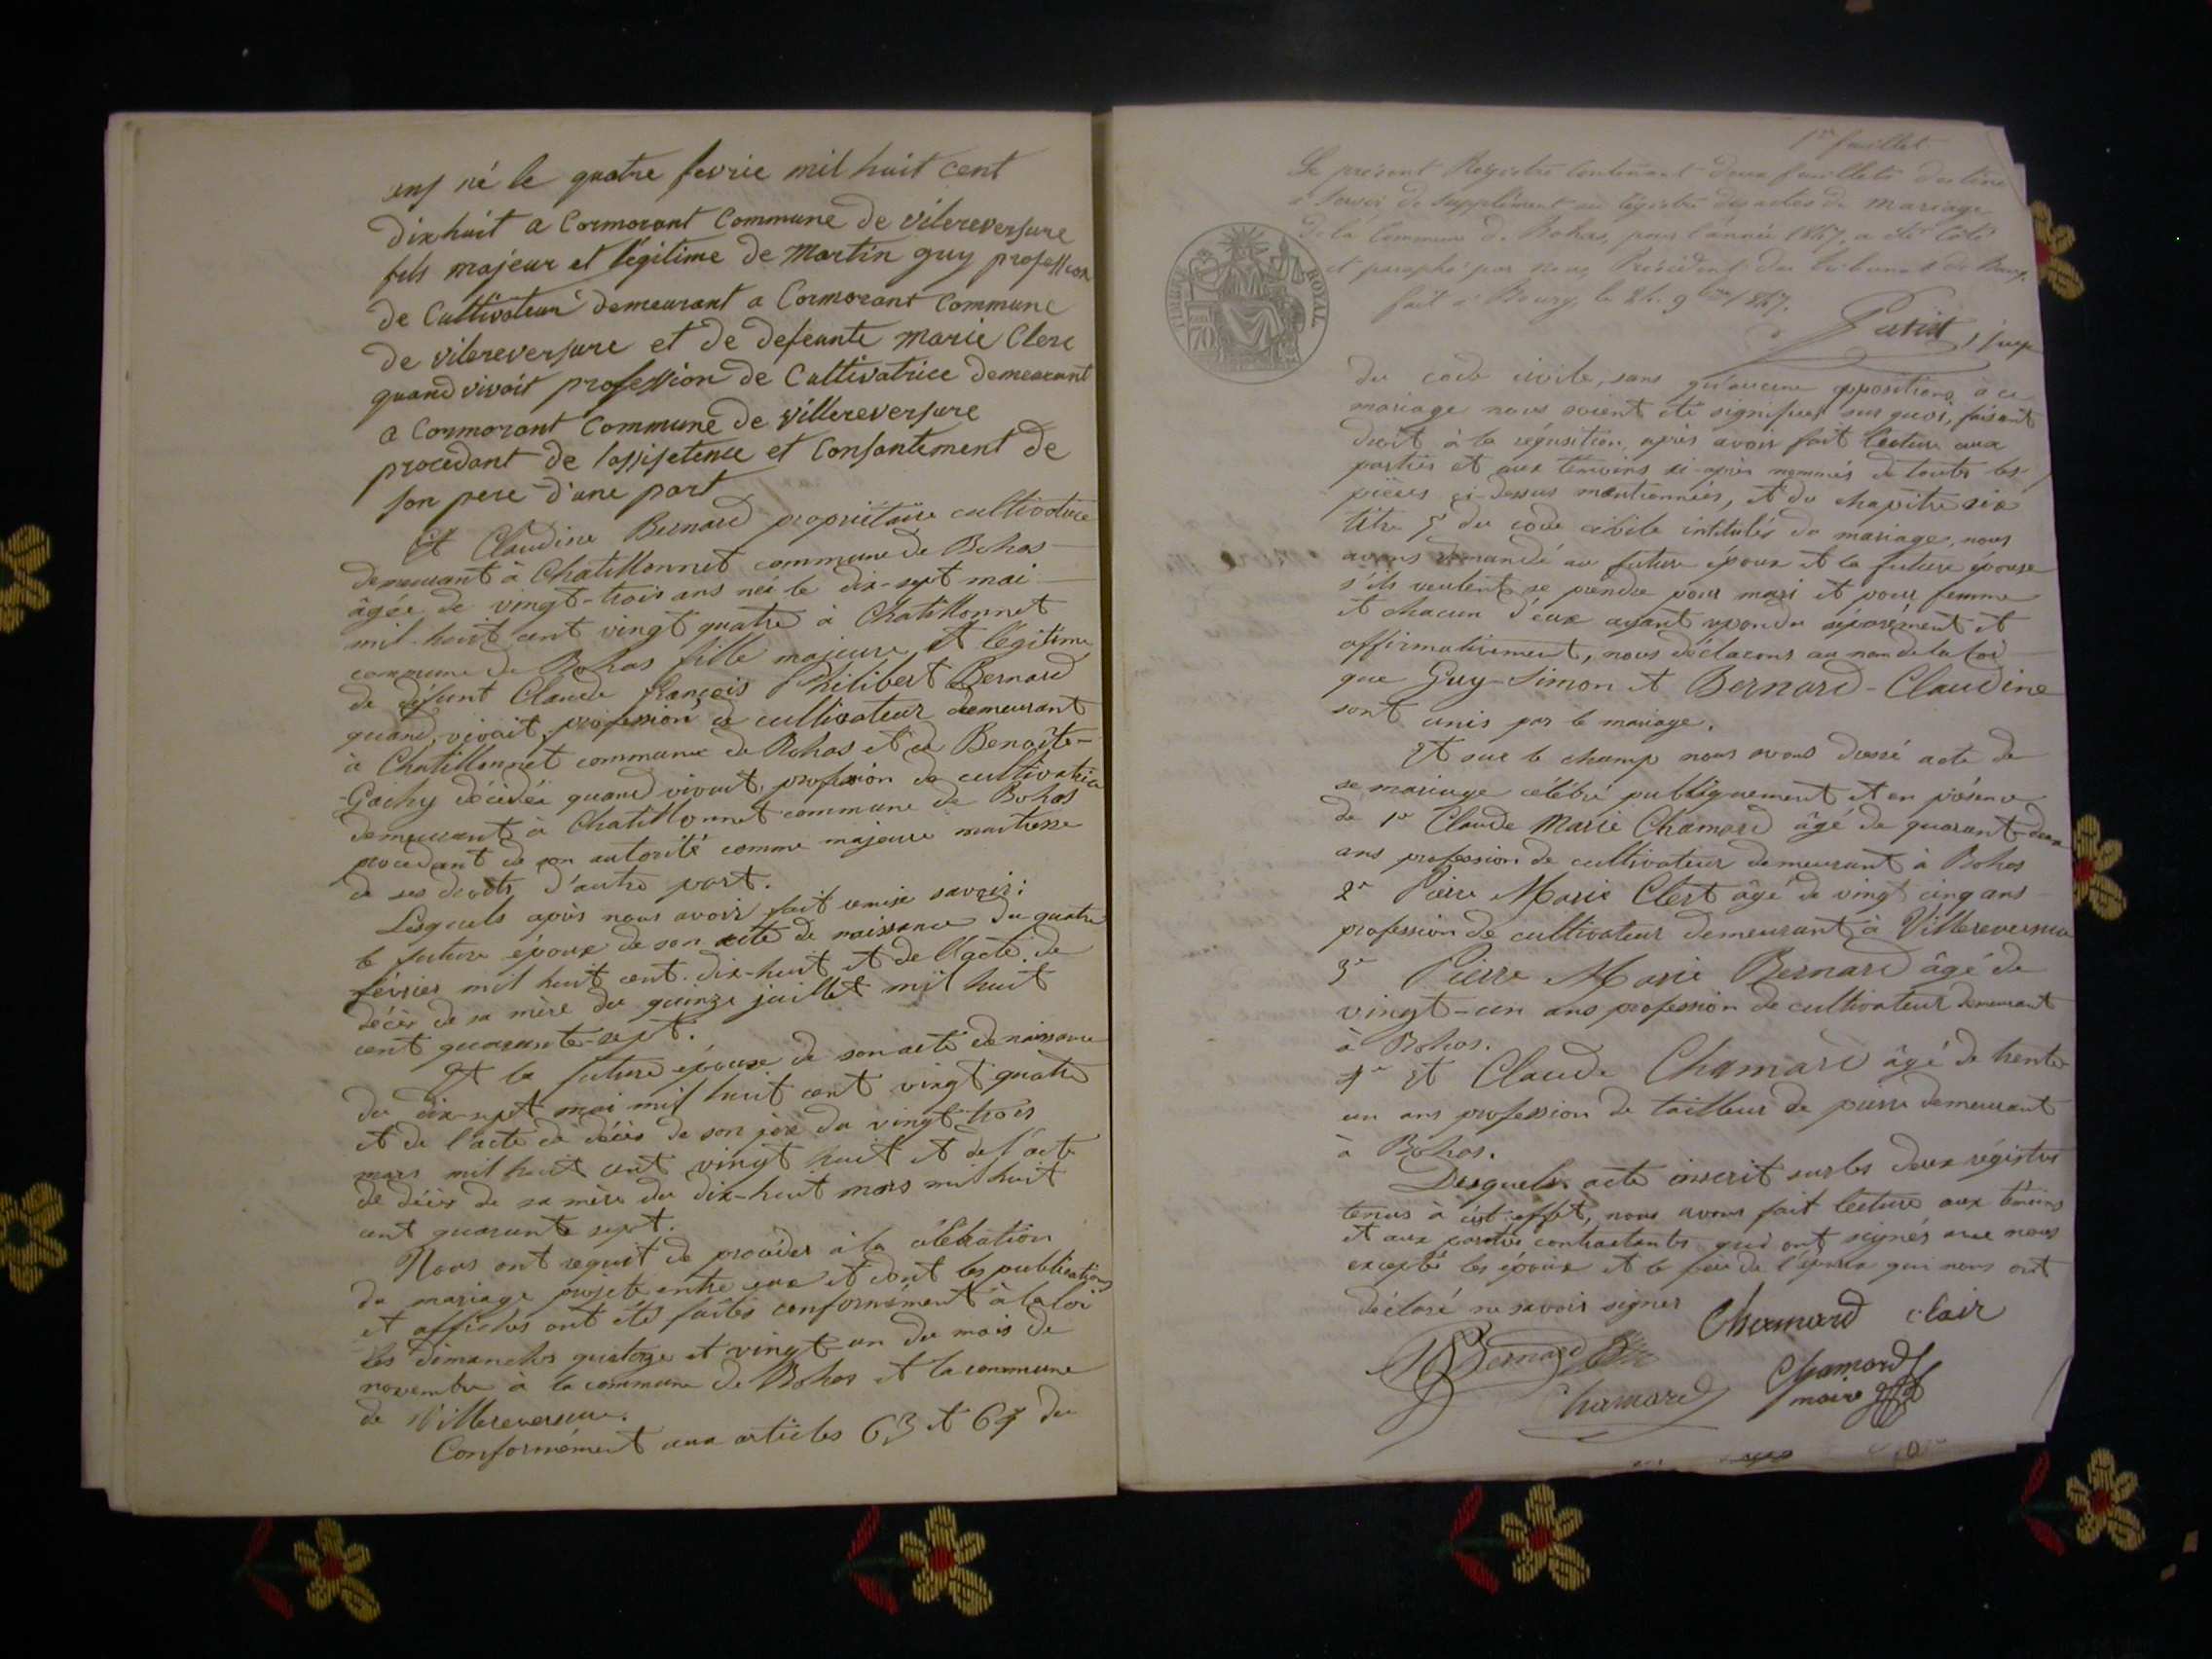 ans né le quatre fevrie mil huit cent
dix huit a Cormorant Commune de vilereversure
fils majeur et légitime de Martin guy profession
de Cultivateur demeurant a Cormorant Commune
de vilereversure et de defeunte Marie Clere
quand vivoit profession de Cultivatrice demeurant
a Cormorant Commune de villereversure
procedant de lassisetence et Consantement de
son pere d'une part
Et Claudine Bernard propriétaire cultivatrice
demeurant à Chatillonnet commune de Bohas
âgée de vingt-trois ans née le dix-sept mai
mil-huit cent vingt quatre à Chatillonnet
commune de Bohas fille majeure et légitime
de défunt Claude françois Philibert Bernard
quand vivait, profession de cultivateur demeurant
à Chatillonnet commune de Bohas et de Benoîte
Gachy décédée quand vivait, profession de cultivatrice
demeurant à Chatillonnet commune de Bohas
procedant de son autorité comme majeure maitresse
de ses droits d'autre part.
Lesquels après nous avoir fait remise savoir:
le future époux de son acte de naissance du quatre
février mil huit cent dix-huit et de l'acte de
décès de sa mère du quinze juillet mil huit
cent quarante-sept.
Et la future épouse de son acte de naissance
du dix-sept mai mil huit cent vingt quatre
et de l'acte de décès de son père du vingt trois
mars mil huit cent vingt huit et de l'acte
de décès de sa mère du dix-huit mars mil huit
cent quarante sept.
Nous ont requit de procéder à la célébration
du mariage projeté entre eux et dont les publications
et affiches ont été faites conformément à la loi
les dimanches quatorze et vingt-un du mois de
novembre à la commune de Bohas et la commune
de Villereversure.
Conformément aux articles 63 et 64 du
1er feuillet
Le présent Registre Contenant deux feuillets destiné
à servir de Supplément au régistre des actes de mariage
de la Commune de Bohas, pour l'année 1847, a été Coté
et paraphé par nous Président du tribunal de Bourg.
fait à Bourg, le 24 9bre 1847.
TIMBRE ROYAL
du code civile, sans qu'aucune oppositions à ce
mariage nous soient été signifiées sur quoi, faisant
droit à la réquisition, après avoir fait lecture aux
parties et aux témoins ci-après nommés de toutes les
pièces ci-dessus mentionnées, et du chapitre six
titre 5 du code civile intitulés du mariage, nous
avons demandé au future époux et la future épouse
s'ils veulent se prendre pour mari et pour femme
et chacun d'eux ayant répondu séparément et
affirmativement, nous déclarons au nom de la loi
que Guy-Simon et Bernard-Claudine
sont unis par le mariage.
Et sur le champ nous avons dressé acte de
se mariage célébré publiquement et en présence
de 1e Claude Marie Chamard âgé de quarant-deux
ans profession de cultivateur demeurant à Bohas
2e Pierre Marie Clert âgé de vingt cinq ans
profession de cultivateur demeurant à Villereversure
3e Pierre Marie Bernard âgé de
vingt-un ans profession de cultivateur demeurant
à Bohas.
4e Et Claude Chamard âgé de trente
un ans profession de tailleur de pierre demeurant
à Bohas.
Desquels acte inscrit sur les deux régistres
tenus à cet effet, nous avons fait lecture aux témoins
et aux parties contractantes qui ont signés avec nous
excepté les époux et le père de l'époux qui nous ont
déclaré ne savoir signer
Chamard clair
Bernard
Chamard
Chamard
maire